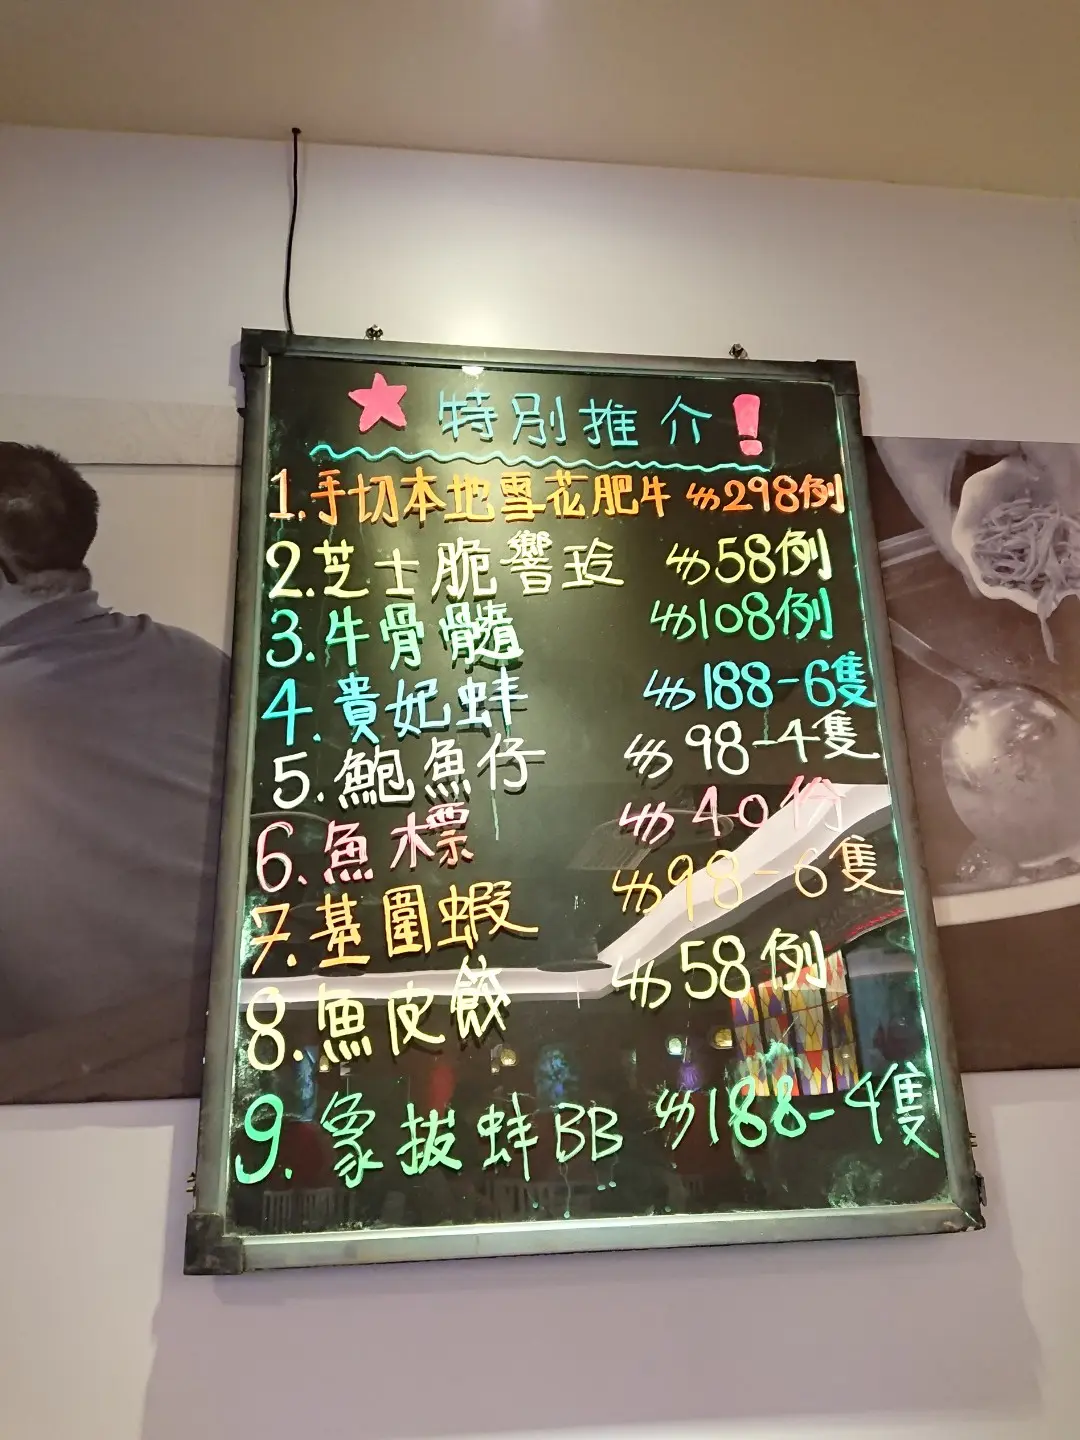 特別推介!
1.手切本地雪花肥牛 $298例
2.芝士脆響玲 $58例
3.牛骨髓 $108例
4.貴妃蚌 $188-6隻
5.鮑魚仔 $98-4隻
6.魚木票 $40份
7.基圍蝦 $98-6隻
8.魚皮餃 $58例
9.象拔蚌BB $188-4隻